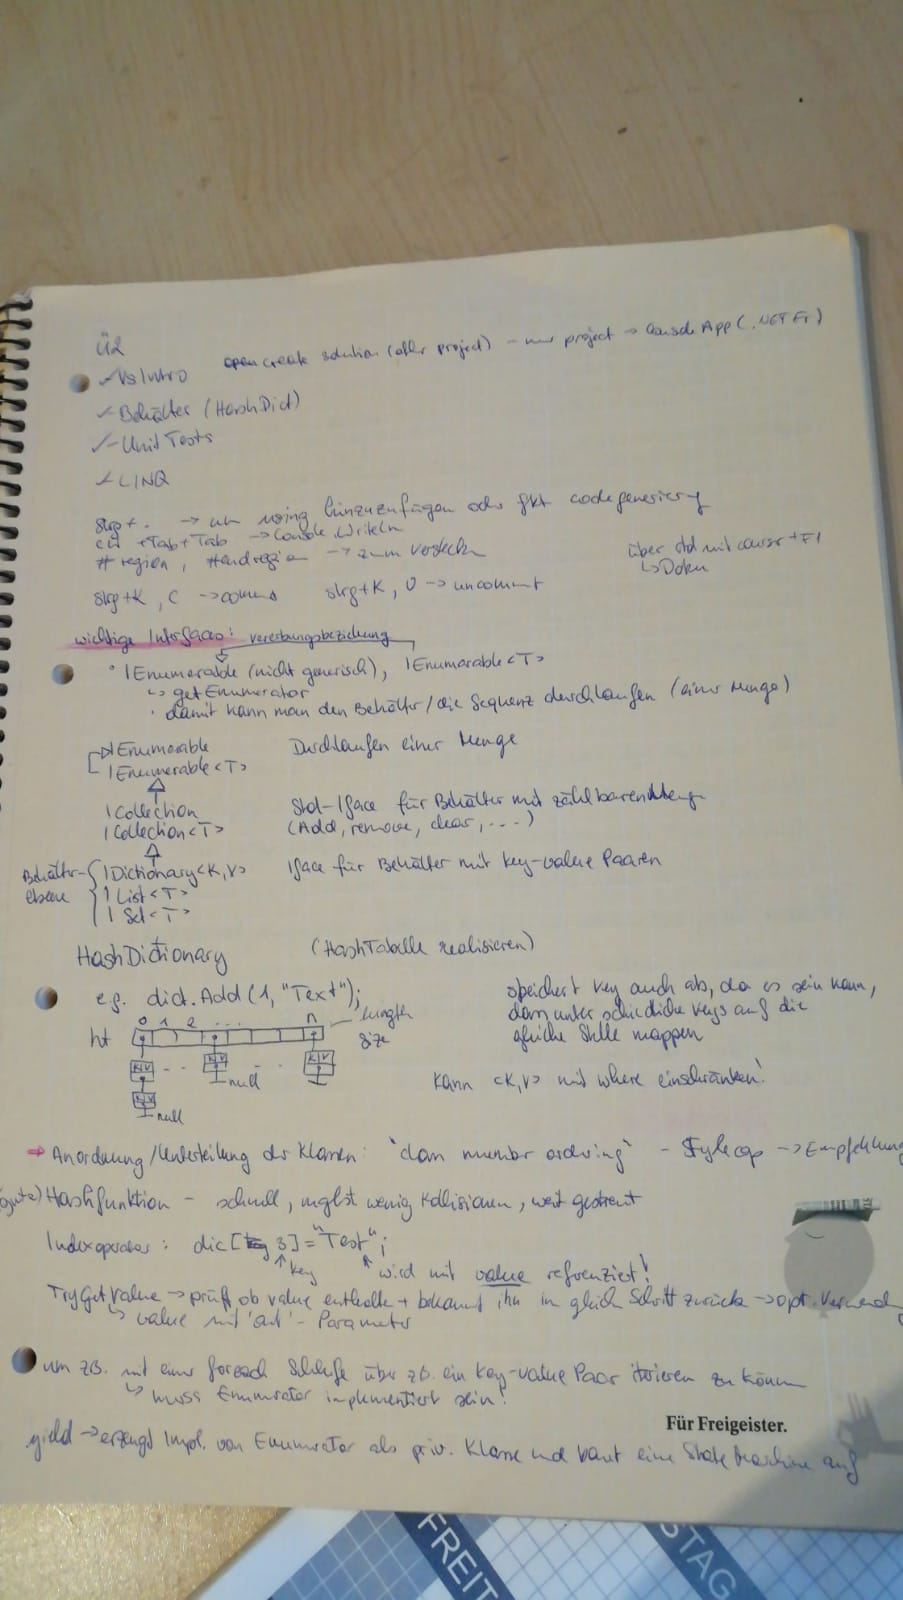 Ü2
✓ VsIntro open create solution (other project) - new project → Console App (.NET Fr)
✓ Behälter (HashDict)
✓ - Unit Tests
✓ LINQ
strg + . → um using hinzuzufügen oder für codegenerierg
cw + Tab + Tab → Console.Writeln
# region, # endregion → zum verstecken
über std mit cursor + F1
↳ Doku
strg + K, C → comment strg + K, U → uncomment
wichtige Interfaces: vererbungsbeziehung
• IEnumerable (nicht generisch), IEnumerable<T>
↳ getEnumerator
· damit kann man den Behälter/die Sequenz durchlaufen (einer Menge)
IEnumerable Durchlaufen einer Menge
IEnumerable<T>
ICollection Std-Iface für Behälter mit zählbaren
ICollection<T> (Add, remove, clear, ...)
Behälter- IDictionary<K,V> Iface für Behälter mit key-value Paaren
ebene IList<T>
ISet<T>
HashDictionary (HashTabelle realisieren)
e.g. dict.Add(1, "Text");
speichert key auch ab, da es sein kann,
dass unterschiedliche keys auf die
gleiche Stelle mappen
0 1 2 ... n length
ht size
K|V K|V K|V
null
K|V
null
Kann <K,V> mit where einschränken!
⇒ Anordnung/Unterteilung der Klassen: "class member ordering" - Stylecop → Empfehlung
(gute) Hashfunktion - schnell, mglst wenig Kollisionen, weit gestreut
Indexoperator: dic[3] = "Test";
↑ key ↑ wird mit value referenziert!
TryGetValue → prüft ob value enthalten + bekommt ihn in gleich Schritt zurück → opt. Verwendg
↳ value mit 'out' - Parameter
um zB. mit einer foreach Schleife über zB. ein key-value Paar iterieren zu können
↳ muss Enumerator implementiert sein!
Für Freigeister.
yield → erzeugt Impl. von Enumerator als priv. Klasse und baut eine State Maschine auf
FREIT
STAG